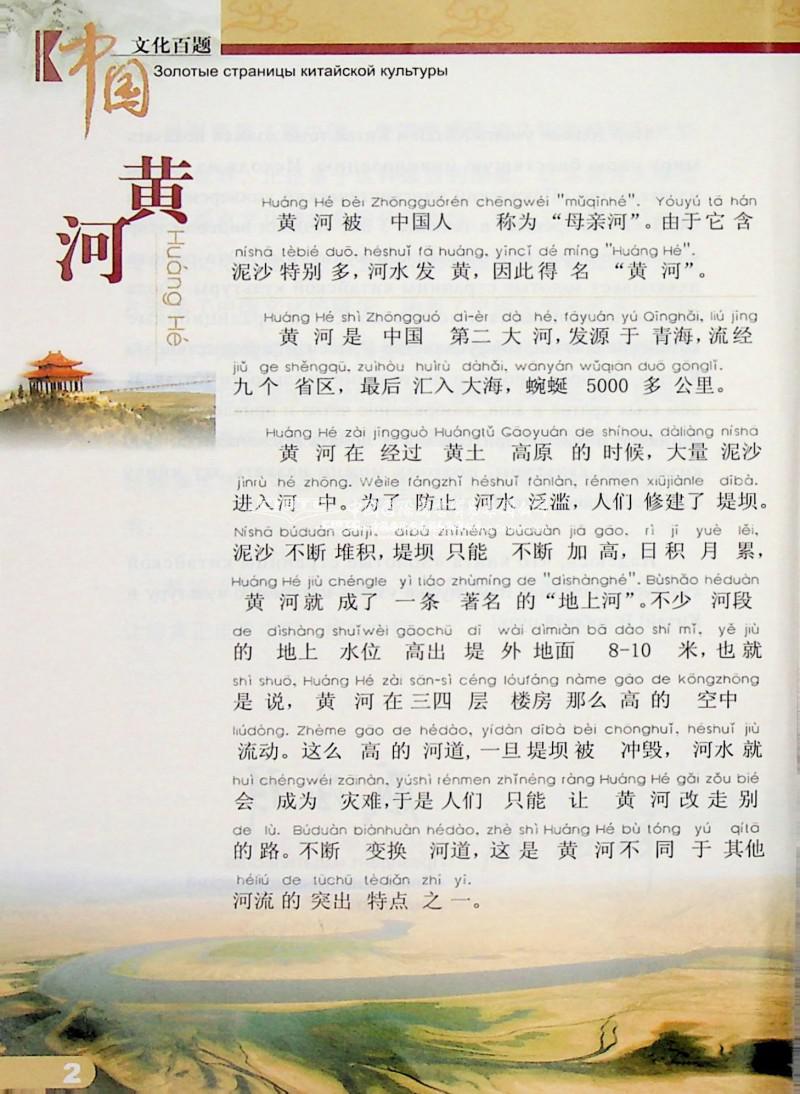 中国
文化百题
Золотые страницы китайской культуры
黄河
Huáng Hé
Huáng Hé bèi Zhōngguórén chēngwéi "mǔqīnhé". Yóuyú tā hán
黄河被中国人称为“母亲河”。由于它含
níshā tèbié duō, héshuǐ fā huáng, yīncǐ dé míng "Huáng Hé".
泥沙特别多，河水发黄，因此得名“黄河”。
Huáng Hé shì Zhōngguó dì-èr dà hé, fāyuán yú Qīnghǎi, liú jīng
黄河是中国第二大河，发源于青海，流经
jiǔ ge shěngqū, zuìhòu huìrù dàhǎi, wānyán wǔqiān duō gōnglǐ.
九个省区，最后汇入大海，蜿蜒 5000 多公里。
Huáng Hé zài jīngguò Huángtǔ Gāoyuán de shíhou, dàliàng níshā
黄河在经过黄土高原的时候，大量泥沙
jìnrù hé zhōng. Wèile fángzhǐ héshuǐ fànlàn, rénmen xiūjiànle dībà.
进入河中。为了防止河水泛滥，人们修建了堤坝。
Níshā búduàn duījī, dībà zhǐnéng búduàn jiā gāo, rì jī yuè lěi,
泥沙不断堆积，堤坝只能不断加高，日积月累，
Huáng Hé jiù chéngle yì tiáo zhùmíng de "dìshànghé". Bùshǎo héduàn
黄河就成了一条著名的“地上河”。不少河段
de dìshàng shuǐwèi gāochū dī wài dìmiàn bā dào shí mǐ, yě jiù
的地上水位高出堤外地面 8-10 米，也就
shì shuō, Huáng Hé zài sān-sì céng lóufáng nàme gāo de kōngzhōng
是说，黄河在三四层楼房那么高的空中
liúdòng. Zhème gāo de hédào, yídàn dībà bèi chōnghuǐ, héshuǐ jiù
流动。这么高的河道，一旦堤坝被冲毁，河水就
huì chéngwéi zāinàn, yúshì rénmen zhǐnéng ràng Huáng Hé gǎi zǒu bié
会成为灾难，于是人们只能让黄河改走别
de lù. Búduàn biànhuàn hédào, zhè shì Huáng Hé bù tóng yú qítā
的路。不断变换河道，这是黄河不同于其他
héliú de tūchū tèdiǎn zhī yī.
河流的突出特点之一。
2